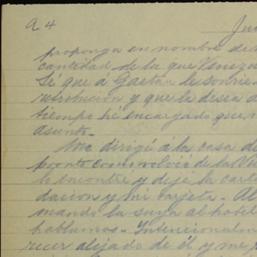 a 4
Jun
proponga en nombre de
cantidad de la que Venezue
Sé que á Gaetán le sonrie
retribución y que la desea
tiempo hé encargado que
asunto.
Me dirigí á la casa de
pronto como volví de la
lo encontré y dejé la car
dación y mi tarjeta. Al
mando la suya al hotel
hablamos. Intencional
recer alejado de él y me